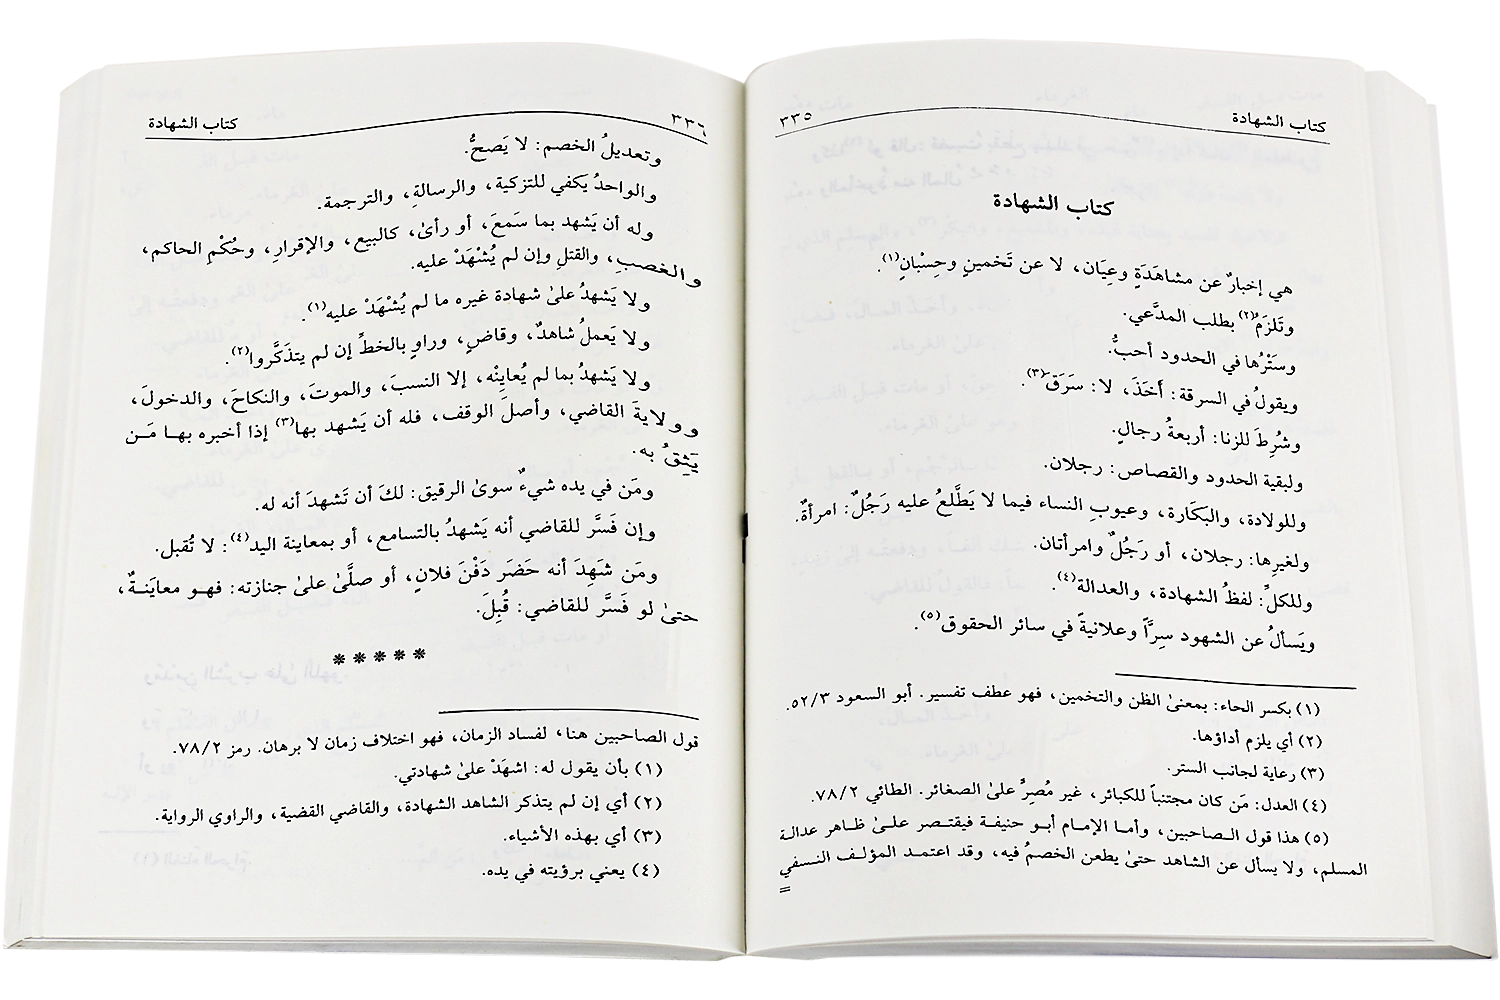 كتاب الشهادة
٣٣٥
كتاب الشهادة
هي إخبارٌ عن مشاهَدَةٍ وعِيَان، لا عن تَخمينٍ وحِسْبانٍ(١).
وتَلزَمُ(٢) بطلب المدَّعي.
وسَتْرُها في الحدود أحبُّ.
ويقولُ في السرقة: أخَذَ، لا: سَرَقَ(٣).
وشُرِطَ للزنا: أربعةُ رجالٍ.
ولبقية الحدود والقصاص: رجلان.
وللولادة، والبكَارة، وعيوبِ النساء فيما لا يَطَّلعُ عليه رَجُلٌ: امرأةٌ.
ولغيرِها: رجلان، أو رَجُلٌ وامرأتان.
وللكلِّ: لفظُ الشهادة، والعدالة(٤).
ويَسألُ عن الشهود سِرَّاً وعلانيةً في سائر الحقوق(٥).
(١) بكسر الحاء: بمعنىٰ الظن والتخمين، فهو عطف تفسير. أبو السعود ٥٢/٣.
(٢) أي يلزم أداؤها.
(٣) رعاية لجانب الستر.
(٤) العدل: مَن كان مجتنباً للكبائر، غير مُصِرٍّ علىٰ الصغائر. الطائي ٧٨/٢.
(٥) هذا قول الصاحبين، وأما الإمام أبو حنيفة فيقتصر علىٰ ظاهر عدالة
المسلم، ولا يسأل عن الشاهد حتىٰ يطعن الخصمُ فيه، وقد اعتمد المؤلف النسفي
=
٣٣٦
كتاب الشهادة
وتعديلُ الخصم: لا يَصحُّ.
والواحدُ يكفي للتزكية، والرسالةِ، والترجمة.
وله أن يَشهد بما سَمعَ، أو رأىٰ، كالبيع، والإقرارِ، وحُكْمِ الحاكم،
والغصبِ، والقتلِ وإن لم يُشْهَدْ عليه.
ولا يَشهدُ علىٰ شهادة غيره ما لم يُشْهَدْ عليه(١).
ولا يَعملُ شاهدٌ، وقاضٍ، وراوٍ بالخطِّ إن لم يتذكَّروا(٢).
ولا يَشهدُ بما لم يُعاينْه، إلا النسبَ، والموتَ، والنكاحَ، والدخولَ،
وولايةَ القاضي، وأصلَ الوقف، فله أن يَشهد بها(٣) إذا أخبره بها مَن
يَثِقُ به.
ومَن في يده شيءٌ سوىٰ الرقيق: لكَ أن تَشهدَ أنه له.
وإن فَسَّر للقاضي أنه يَشهدُ بالتسامع، أو بمعاينة اليد(٤): لا تُقبل.
ومَن شَهِدَ أنه حَضَر دَفْنَ فلانٍ، أو صلَّىٰ علىٰ جنازته: فهو معايَنةٌ،
حتىٰ لو فَسَّر للقاضي: قُبِلَ.
*****
قول الصاحبين هنا، لفساد الزمان، فهو اختلاف زمان لا برهان. رمز ٧٨/٢.
(١) بأن يقول له: اشهَدْ علىٰ شهادتي.
(٢) أي إن لم يتذكر الشاهد الشهادة، والقاضي القضية، والراوي الرواية.
(٣) أي بهذه الأشياء.
(٤) يعني برؤيته في يده.